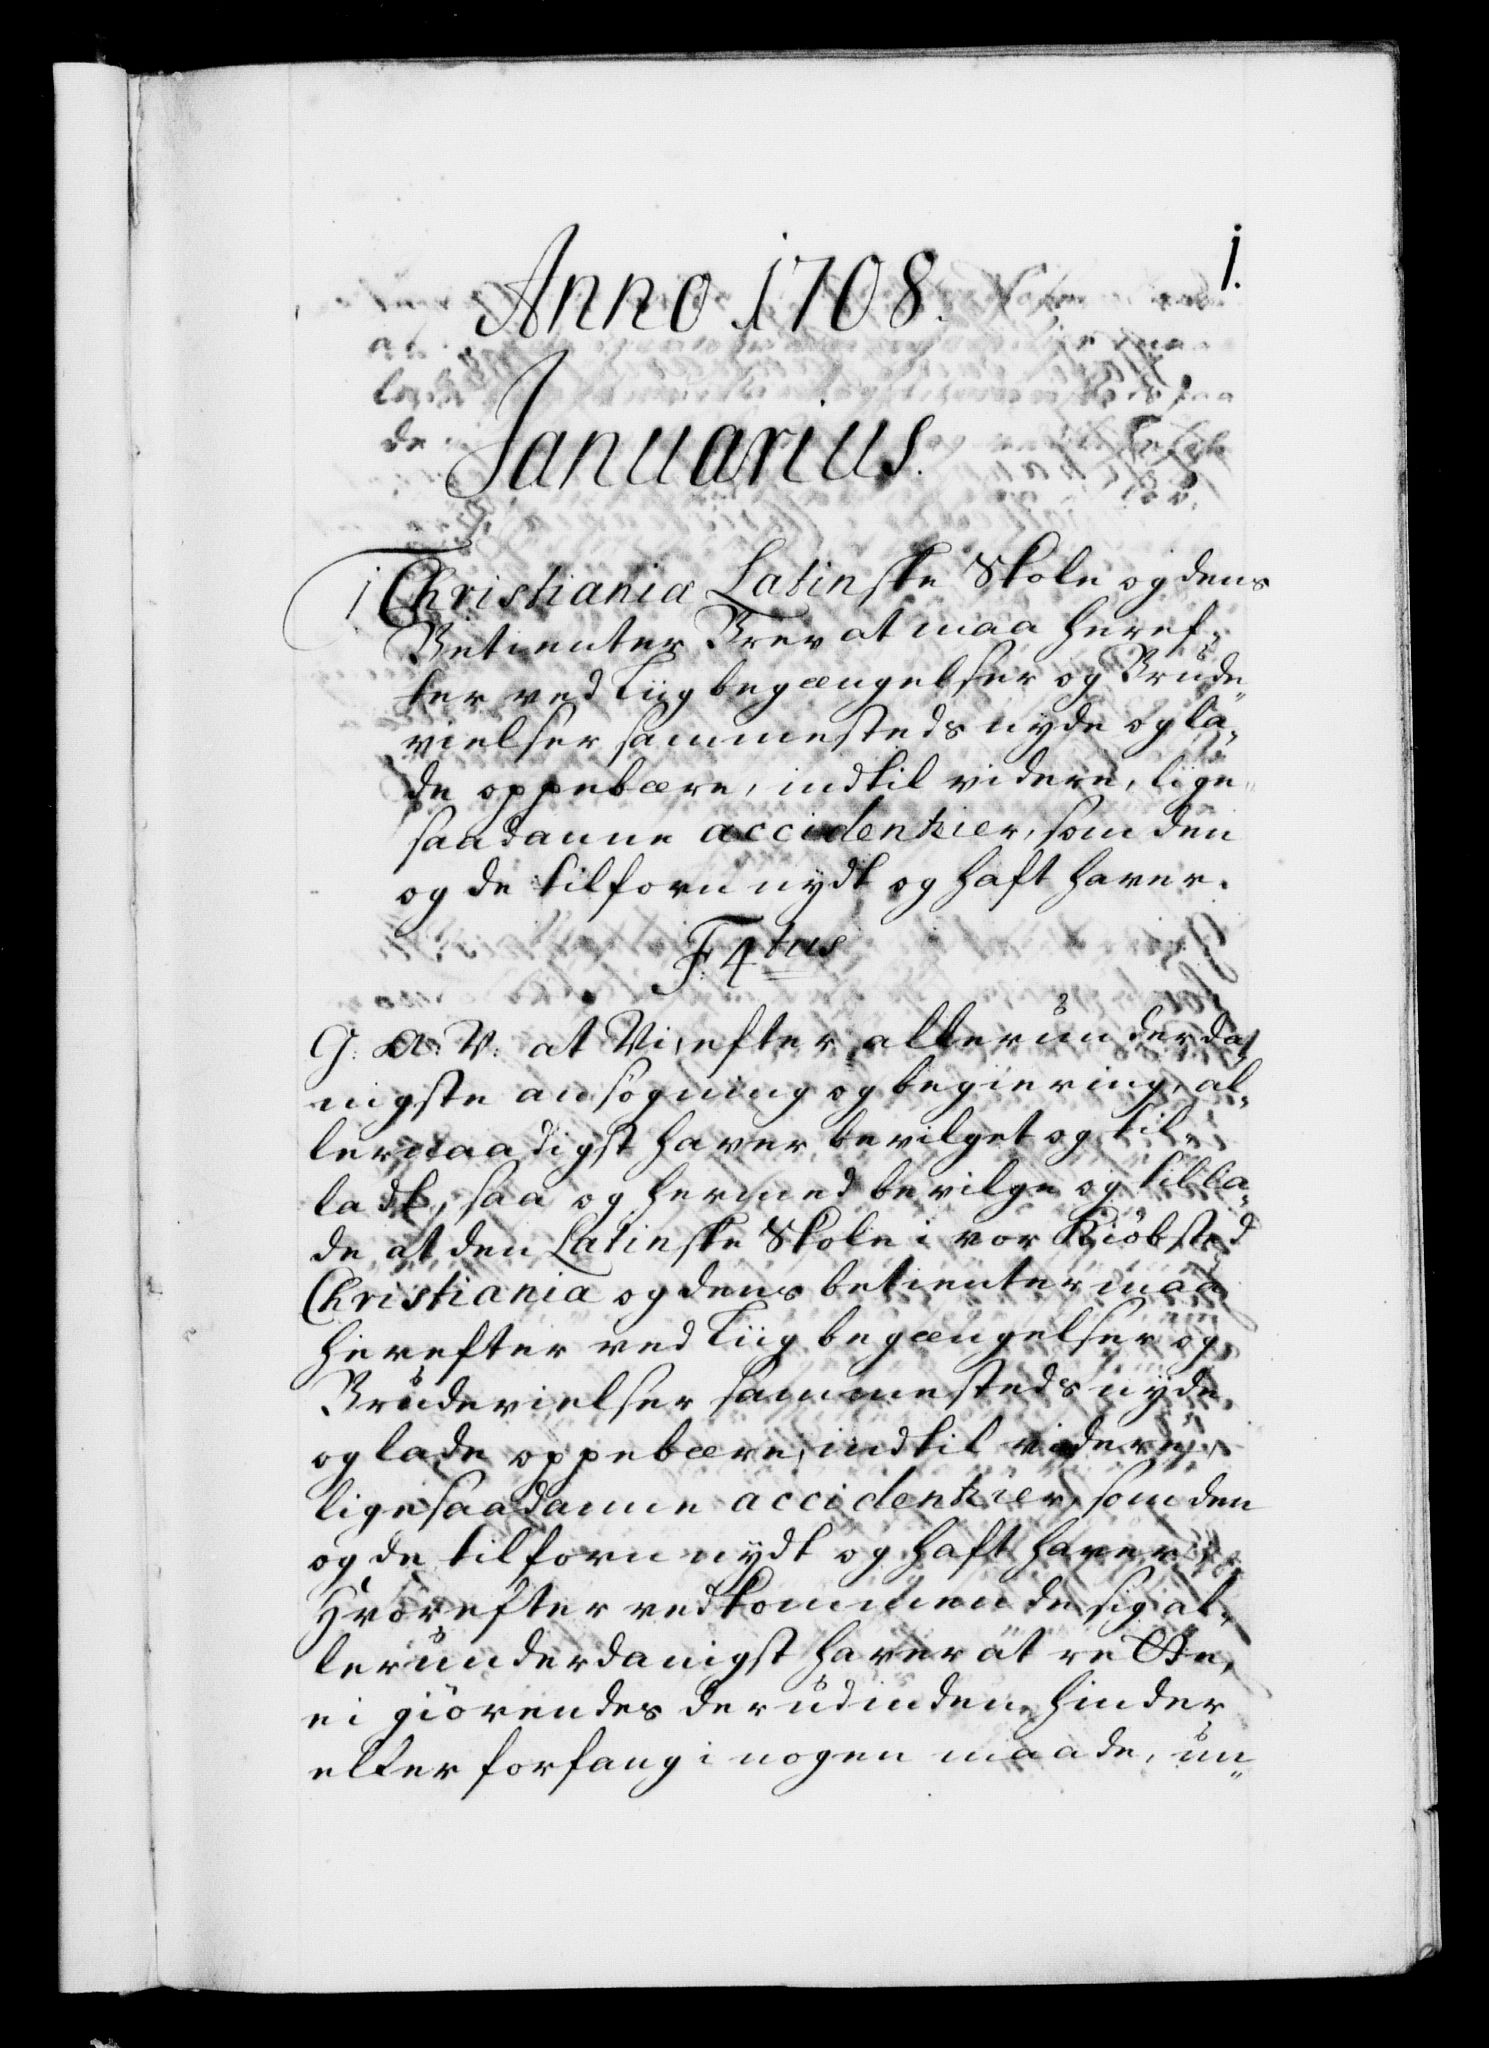 1.
Anno 1708.
Januarius.
1 Christiania Latinske Skole og dens
Betienter Brev at maa heref¬
ter ved Liigbegængelser og Brude¬
vielser sammesteds nyde og la¬
de oppebære, indtil videre, lige¬
saadanne accidentzier, som den
og de tilforn nydt og haft haver.
F: 4tus
G: A: V: at Vi, efter allerunderda¬
nigste ansögning og begiering, al¬
lernaadigst haver bevilget og til¬
ladt, saa og hermed bevilge og tilla¬
de at den Latinske Skole i vor Kiöbsted
Christiania og dens betienter maa
herefter ved Liigbegængelser og
Brudevielser sammesteds nyde
og lade oppebære, indtil videre,
ligesaadanne accidentzier, som den
og de tilforn nydt og haft haver
Hvorefter vedkommende sig al¬
lerunderdanigst haver at rette,
ei giörendes der udinden hinder
eller forfang i nogen maade, un¬